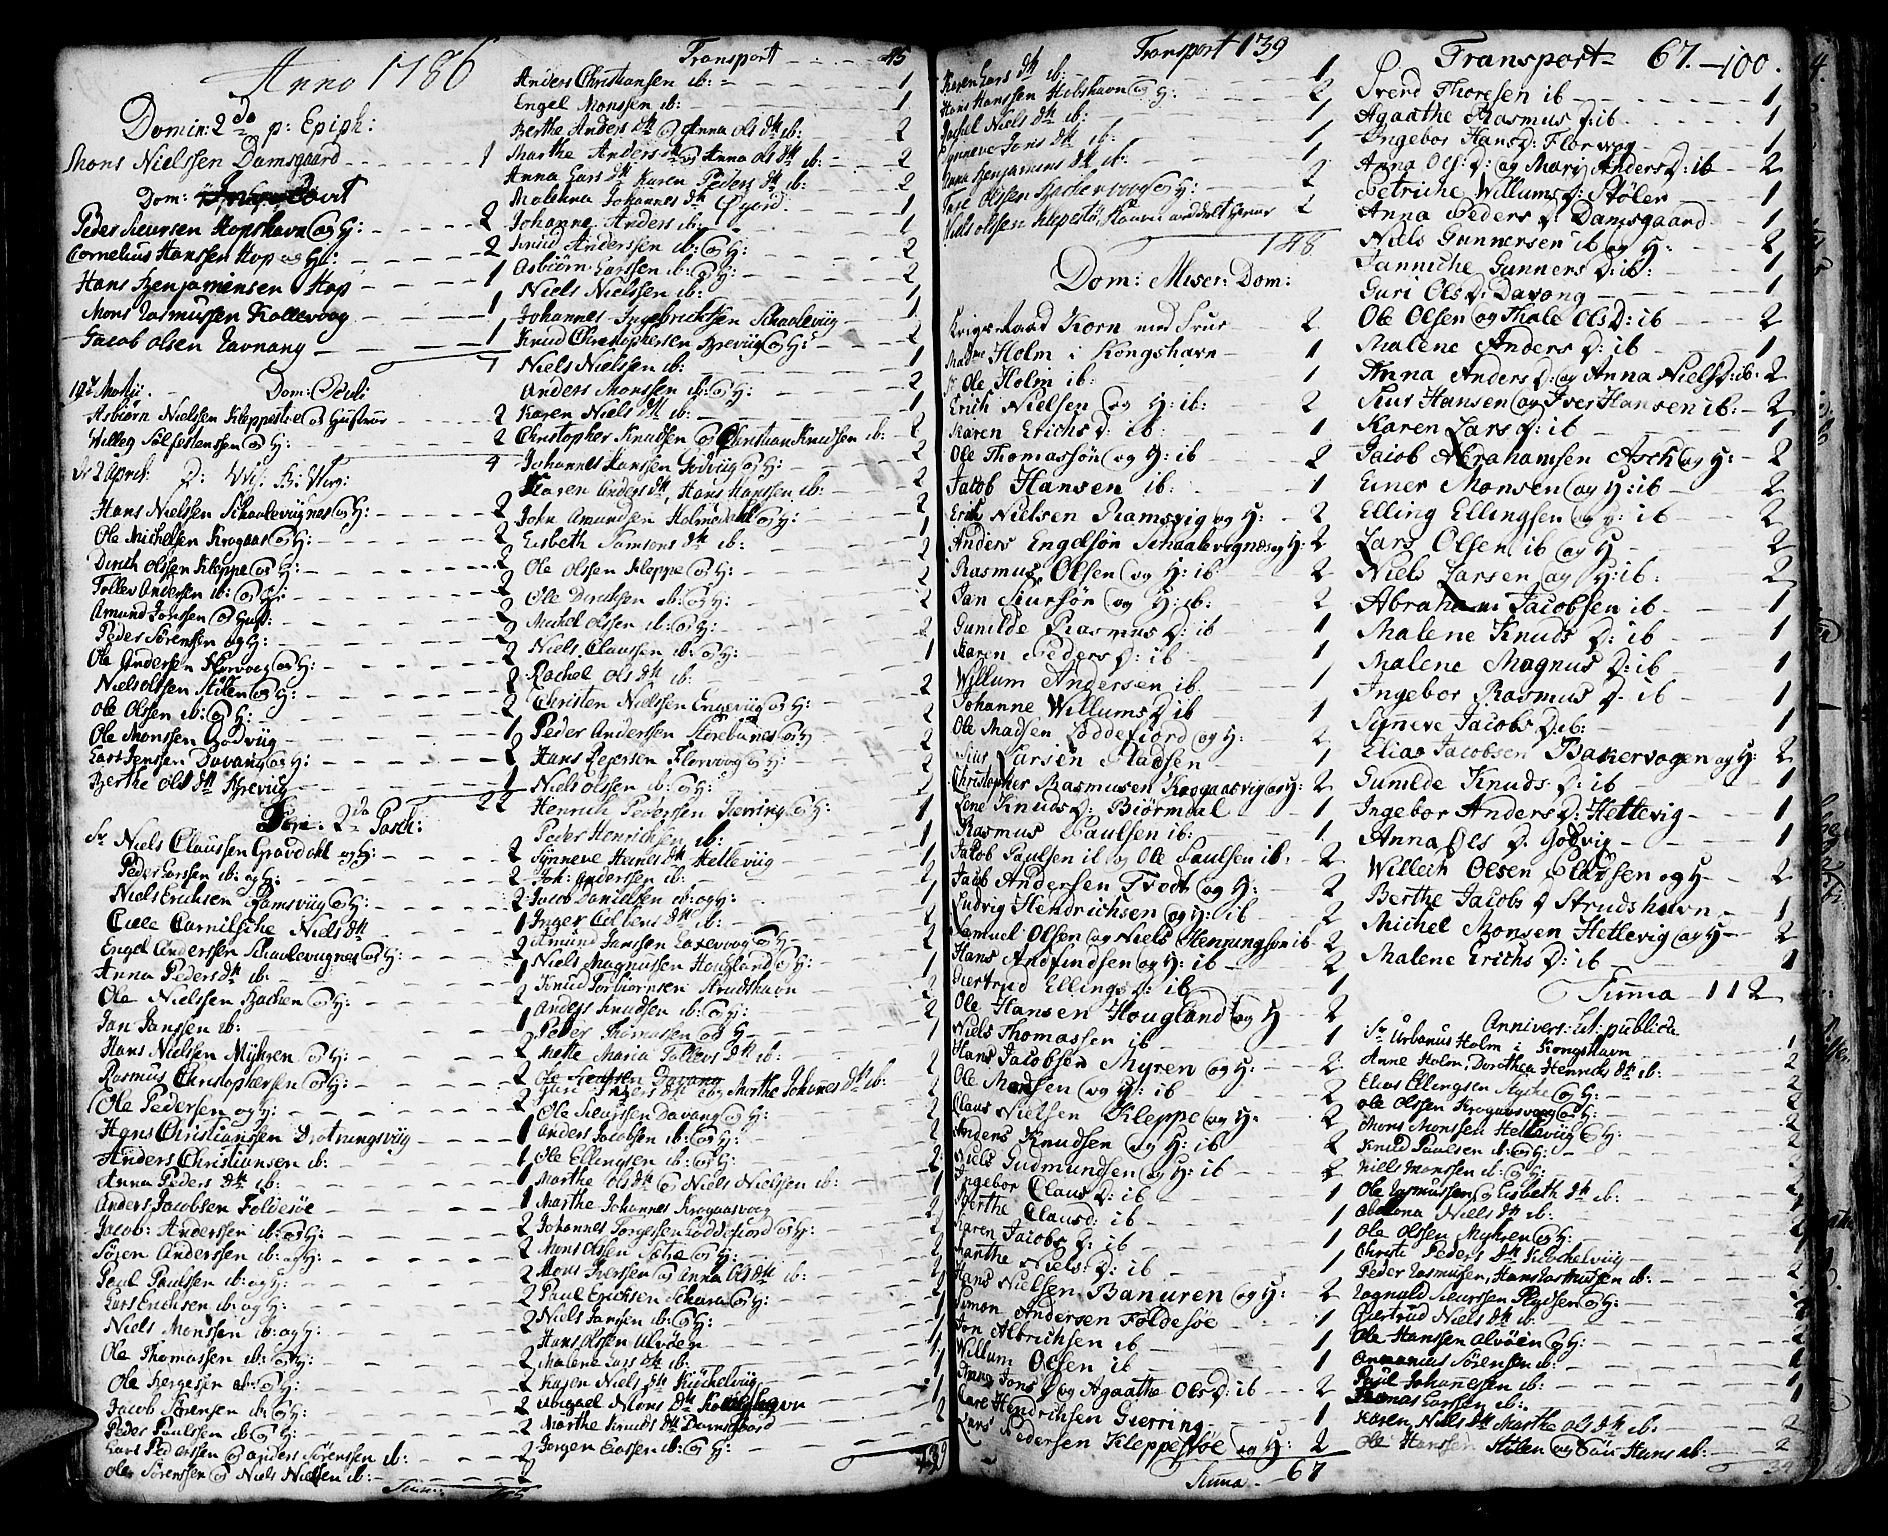 Anno 1786
Domin: 2da p: Epiph:
Mons Nielssen Damsgaard - 1
Dom:
Peder Siursen Hopshavn og H: - 2
Cornelius Hanssen Hop og H: - 2
Hans Benjaminsen Hop - 1
Mons Rasmussen Kollevog - 1
Jacob Olsen Ravnang - 1
7
Dom: Oculi
Asbiørn Nielssen Kleppestøe og Hustrue 2
Willeg Solfestenssen og H: 2
4
Hans Nielssen Schaalevügnes og H: - 2
Ole Michelsen Krogaas og H: - 2
Dirich Olssen Kleppe og H: - 2
Tollev Andersen ib: og H: - 2
Amund Jonssen og Hust: - 2
Peder Sørenssen og H: - 2
Ole Andersen Florvog og H: - 2
Niels Olssen Stølen og H: - 2
Ole Olssen ib: og H: - 2
Ole Monssen Godvüg - 1
Lars Jenssen Davang og H: - 2
Berthe Ols dtr Brevüg - 1
22
Fer: 2da Pasch:
Sr Niels Claussen Gravdahl og H: - 2
Peder Larssen ib: og H: - 2
Niels Erichsen Ramsvüg og H: - 2
Engel Anderssen Schaalevügnes og H: - 2
Anna Peders dtr ib: - 1
Ole Nielssen Bachen og H: - 2
Jan Janssen ib: - 1
Hans Nielssen Myhren og H: - 2
Rasmus Christophersen og H: - 2
Ole Pedersen og H: - 2
Hans Christianssen Drotningsvüg - 1
Anders Christiansen ib: - 1
Anna Peders dtr ib: - 1
Anders Jacobsen Foldesøe - 1
Jacob: Anderssen ib: og H: - 2
Søren Anderssen ib: og H: - 2
Paul Paulssen ib: og H: - 2
Lars Erichsen ib: og H: - 2
Niels Monssen ib: og H: - 2
Ole Thomassen ib: og H: - 2
Ole Bergesen ib: og H: - 2
Jacob Sørensen ib: og H: - 2
Peder Paulssen ib: og H: - 2
Lars Pederssen og Anders Sørenssen ib: - 2
Ole Sørenssen og Niels Nielsen ib: - 2
Transport - 45
Anders Christiansen ib: - 1
Engel Monssen ib: - 1
Berthe Anders dtr og Anna Ols dtr ib: - 2
Marthe Anders dtr og Anna Ols dtr ib: - 2
Anna Lars dtr Karen Peders dtr ib: - 2
Malehna Johannes dtr
Johanne Anders ib: - 1
Knud Anderssen ib: og H: - 2
Asbiørn Larssen ib: og H: - 2
Niels Nielssen ib: - 1
Johannes Ingebrichtsen Schaalevüg - 1
Knud Christophersen Brevüg og H: - 2
Niels Nielssen ib: - 1
Anders Monssen ib: og H: - 2
Karen Niels dtr ib: - 1
Christopher Knudsen og Christian Knudsen ib: 2
Johannes Hanssen Godvüg og H: - 2
Karen Anders dtr, Hans Hanssen ib: - 2
John Amundsen Holmedahl og H: - 2
Lisbeth Samsons dtr ib: - 1
Ole Olssen Kleppe og H: - 2
Ole Dirichsen ib: og H: - 2
Michel Olssen ib: og H: - 2
Niels Claussen ib: og H: - 2
Rachel Ols dtr ib: - 1
Christen Nielssen Engevüg og H: - 2
Peder Anderssen Storebunes og H: - 2
Hans Pedersen Florvog og H: - 2
Niels Olssen ib: og H: - 2
Henrich Pederssen Gierring og H: - 2
Peder Henrichsen ib: - 1
Synneve Hans dtr Hellevüg - 1
Joh: Anderssen ib: - 1
Jacob Danielssen ib: og H: - 2
Amund Janssen Laxevog og H: - 2
Niels Magnussen Hougland og H: - 2
Knud Torbiørnsen Strudshavn - 1
Anders Knudsen ib: og H: - 2
Peder Thomassen og H: - 2
Mette Maria Tollevs dtr ib: - 1
Ole Siursen Davang
Marthe Johannes dtr ib: 2
Ole Siurssen Davang og H: - 2
Anders Jacobsen ib: og H: - 2
Ole Ellingsen ib: og H: - 2
Marthe Ols dtr og Niels Nielssen ib: - 2
Marthe Johannes Krogaasvog - 1
Johannes Torgelssen Loddefiord og H: - 2
Mons Olssen Sætre og H: - 2
Mons Iverssen og Anna Ols dtr ib: - 2
Paul Erichsen Schuren og H: - 2
Niels Jansen ib: og H: - 2
Hans Olssen Alvøen - 1
Malene Lars dtr ib: - 1
Karen Niels dtr Küchelvüg - 1
Abigael Mons dtr - 1
Marthe Knuds dtr Damsgaard - 1
Jørgen Larssen ib: og H: - 2
139
Transport 139
Karen Lars dtr ib: - 1
Hans Hanssen Hobshavn og H: - 2
Rachel Niels dtr ib: - 1
Synneve Jons dtr ib: - 1
Anna Benjamins dtr ib: - 1
Tore Olssen Bachervogen og H: - 2
Niels Olssen Klepestø
148
Dom: Miser: Dom:
Krigs Raad Korn med Frue 2
Madme Holm i Kongshavn - 1
Sr Ole Holm ib: - 1
Erich Nielsen og H: ib: - 2
Karen Erichs D: ib: - 1
Ole Thomassøn og H: ib - 2
Jacob Hansen ib: - 1
Erich Nielsen Ramsvig og H: - 2
Anders Engelsøn Schaalevignes og H: 2
Rasmus Olsen og H: ib - 2
Jan Siursøn og H: ib: - 2
Gunilde Rasmus D: ib - 1
Karen Peders D: ib - 1
Willum Andersen ib. - 1
Johanne Willums D: ib - 1
Ole Madsen Loddefiord og H: - 2
Sius Larsen Pladsen - 1
Christopher Rasmusen Krogaasvig og H: 2
Lene Knuds D: Biörndal - 1
Rasmus Paulsen ib: - 1
Jacob Paulsen ib og Ole Paulsen ib: - 2
Jacob Andersen Trodt og H: - 2
Ludvig Hendrichsen og H: ib - 2
Samuel Olsen og Niels Henningsøn ib - 2
Hans Andfindsen og H: ib - 2
Giertrud Ellings D: ib - 1
Ole Hansen Hougland og H - 2
Niels Thomassen ib - 1
Hans Jacobsen Myren og H: - 2
Ole Monsen og H: ib - 2
Claus Nielsen Kleppe og H: - 2
Anders Knudsen og H: ib - 2
Niels Gudmundsen og H: ib - 2
Ingebor Claus D: ib - 1
Berthe Claus D: ib - 1
Karen Jacobs D: ib - 1
Marthe Niels: D: ib - 1
Hans Nielsen Banuren og H: - 2
Simon Andersen Foldesøe - 1
Jon Albrichsen ib - 1
Willum Olsen ib - 1
Anna Jons D: og Agaathe Ols D: ib - 2
Lars Hendrichsen Gierring - 1
Lars Pedersen Kleppestøe og H: 2
Summa - 67
Transport - 67. - 100.
Svend Thoresen ib - 1
Agaathe Rasmus D: ib - 1
Ingebor Hans D: Florvog - 1
Anna Ols: D: og Mari Anders D: ib - 2
Petriche Willums D: Stølen - 1
Anna Peders D: Damsgaard - 1
Niels Gunnersen ib og H: - 2
Janniche Gunners D: ib: - 1
Guri Ols D: Davang - 1
Ole Olsen og Thale Ols D: ib - 2
Malene Anders D: ib - 1
Anna Anders D: og Anna Niels D: ib - 2
Sius Hansen og Iver Hansen ib: - 2
Karen Lars D: ib - 1
Jacob Abrahamsen Ask og H: - 2
Einer Monsen og H: ib - 2
Elling Ellingsen og H: ib - 2
Lars Olsen ib og H - 2
Niels Larsen og H: ib: - 2
Abraham Jacobsen ib - 1
Malene Knuds D: ib - 1
Malene Magnus D: ib - 1
Ingebor Rasmus D: ib - 1
Signeve Jacobs D: ib: - 1
Elias Jacobsen Bakervogen og H: 2
Gunilde Knuds D: ib - 1
Ingebor Anders D: Hettevig - 1
Anna Ols D: Godvig - 1
Willich Olsen Pladsen og H - 2
Berthe Jacobs D Strudshavn - 1
Michel Monsen Hettevig og H - 2
Malene Erichs D: ib - 1
Summa - 112
Annivers: Lit: publica
Sr Urbanus Holm i Kongshavn - 1
Anne Holm, Dorothea Henrichs dtr ib: - 2
Elias Ellingsen Myhre og H: - 2
Ole Olssen Krogaasvog og H: - 2
Mons Monssen Hellevüg og H: - 2
Knud Paulsen ib: og H: - 2
Niels Monssen ib: og H: - 2
Ole Rasmussen og Lisbeth dtr ib: - 2
Niels dtr ib: - 1
Ole Olssen Myhren og H: - 2
Christi Peders dtr Küchelvüg - 1
Peder Rasmusen, Hans Rasmussen ib: - 2
Ragnald Siurssen Pladsen og H: - 2
Giertrud Niels dtr ib: - 1
Ole Hanssen Alvøen og H: - 2
Annanias Sørensen ib: - 1
Paul Johannesen ib: - 1
Thomas Larssen ib: - 1
Karen Niels dtr Marthe Ols dtr ib: - 2
Ole Hanssen Stølen og Siur Hans ib: - 2
34